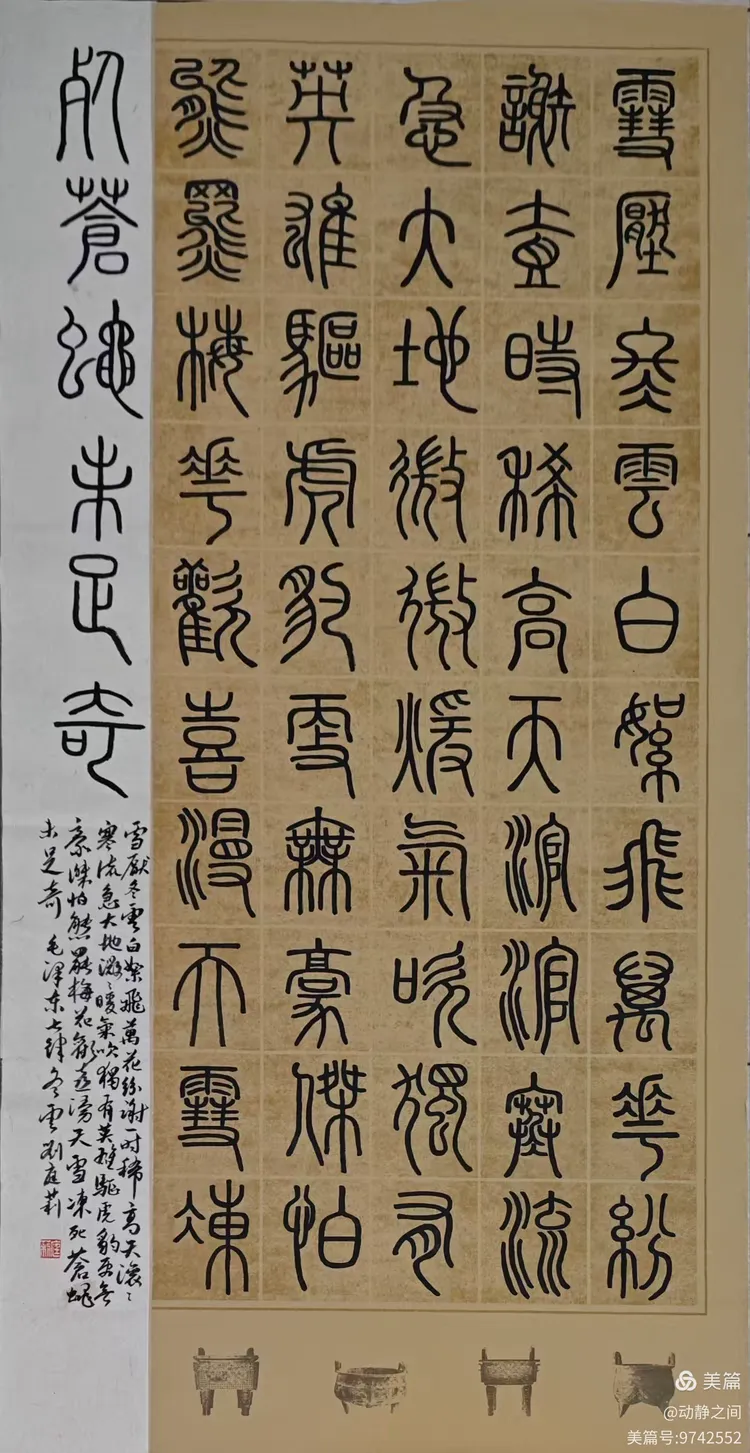 雪壓冬雲白絮飛萬花紛
謝壹時稀高天滾滾寒流
急大地微微煖氣吹獨有
英雄驅虎豹更無豪傑怕
熊羆梅花歡喜漫天雪凍
死蒼蠅未足奇
雪壓冬雲白絮飛萬花紛謝一時稀高天滾〻
寒流急大地微〻暖氣吹獨有英雄驅虎豹更無
豪傑怕熊羆梅花歡喜漫天雪凍死蒼蠅
未足奇 毛澤東七律冬雲刘庭莉
美篇
@动静之间
美篇号:9742552